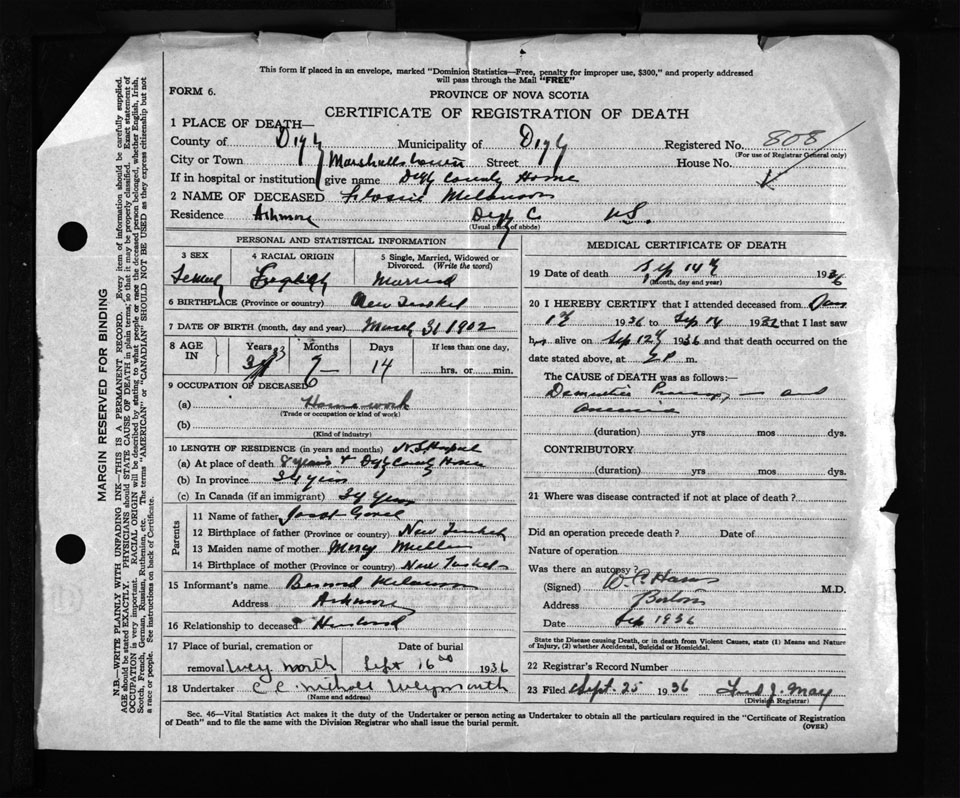 This form if placed in an envelope, marked "Dominion Statistics—Free, penalty for improper use, $300," and properly addressed
will pass through the Mail "FREE"
FORM 6.
PROVINCE OF NOVA SCOTIA
CERTIFICATE OF REGISTRATION OF DEATH
1 PLACE OF DEATH—
County of Digby Municipality of Digby Registered No. 808
(For use of Registrar General only)
City or Town Marshalltown Street House No.
If in hospital or institution give name Digby County Home
2 NAME OF DECEASED
Residence Ashmore Digby C NS.
(Usual place of abode)
PERSONAL AND STATISTICAL INFORMATION
3 SEX 4 RACIAL ORIGIN 5 Single, Married, Widowed or
Divorced. (Write the word)
Female English Married
6 BIRTHPLACE (Province or country) New Tusket
7 DATE OF BIRTH (month, day and year) March 31 1902
8 AGE IN Years Months Days If less than one day,
14 hrs. or min.
9 OCCUPATION OF DECEASED
(a) House work
(Trade or occupation or kind of work)
(b)
(Kind of industry)
10 LENGTH OF RESIDENCE (in years and months)
(a) At place of death 8 years Digby County Home
(b) In province 34 years
(c) In Canada (if an immigrant) 34 years
Parents
11 Name of father
12 Birthplace of father (Province or country) New Tusket
13 Maiden name of mother Mary
14 Birthplace of mother (Province or country) New Tusket
15 Informant's name Bernard
Address Ashmore
16 Relationship to deceased Husband
17 Place of burial, cremation or Date of burial
removal Weymouth Sept 16 1936
18 Undertaker Weymouth
(Name and address)
MEDICAL CERTIFICATE OF DEATH
19 Date of death Sep 14 1936
(Month, day and year)
20 I HEREBY CERTIFY that I attended deceased from
1936 to Sep 14 1936 that I last saw
alive on Sep 12 1936 and that death occurred on the
date stated above, at P m.
The CAUSE of DEATH was as follows:—
Dementia Praecox — and
Anaemia
(duration) yrs mos dys.
CONTRIBUTORY.
(duration) yrs mos dys.
21 Where was disease contracted if not at place of death?
Did an operation precede death? Date of
Nature of operation
Was there an autopsy?
(Signed) M.D.
Address
Date Sep 1936
State the Disease causing Death, or in death from Violent Causes, state (1) Means and Nature
of Injury, (2) whether Accidental, Suicidal or Homicidal.
22 Registrar's Record Number
23 Filed Sept. 25 1936 J. May
(Division Registrar)
Sec. 46—Vital Statistics Act makes it the duty of the Undertaker or person acting as Undertaker to obtain all the particulars required in the "Certificate of Registration
of Death" and to file the same with the Division Registrar who shall issue the burial permit. (OVER)
MARGIN RESERVED FOR BINDING
N.B.—WRITE PLAINLY WITH UNFADING INK—THIS IS A PERMANENT RECORD. Every item of information should be carefully supplied.
AGE should be stated EXACTLY. PHYSICIANS should STATE CAUSE OF DEATH in plain terms, so that it may be properly classified. Exact statement of
OCCUPATION is very important. RACIAL ORIGIN will be described by stating to what people or race the deceased person belonged, whether English, Irish,
Scotch, French, German, Russian, Ruthenian, etc. The terms "AMERICAN" or "CANADIAN" SHOULD NOT BE USED as they express citizenship but not
a race or people. See instructions on back of Certificate.